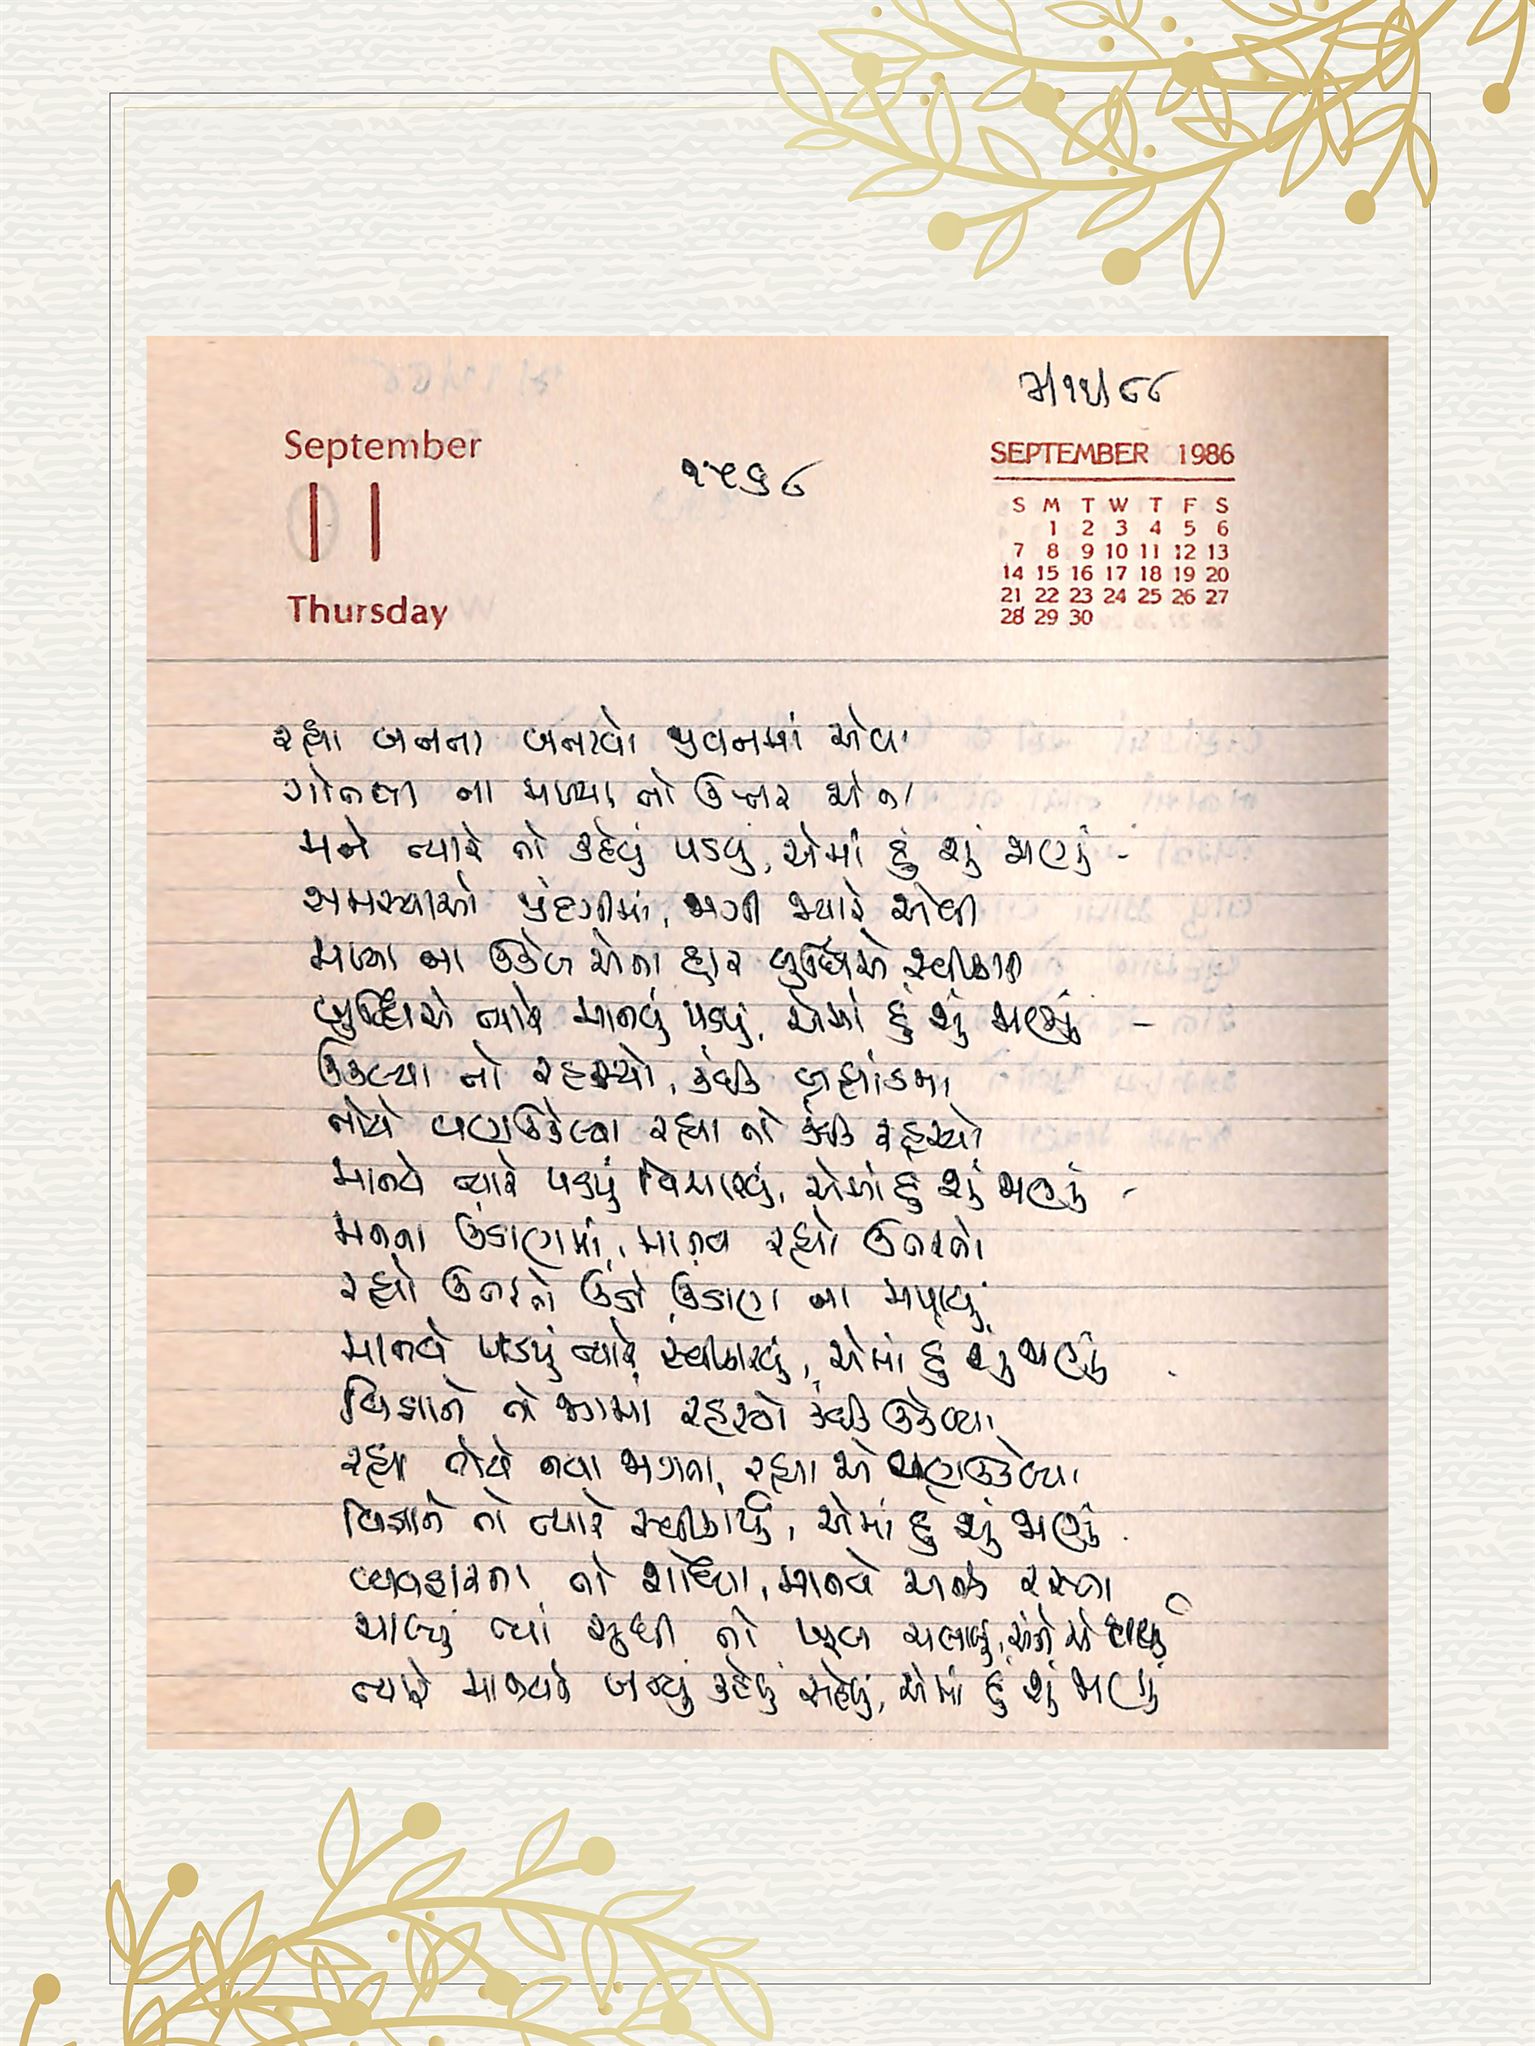 ૩/૧૫/૮૮
September
11
Thursday
SEPTEMBER 1986
S M T W T F S
1 2 3 4 5 6
7 8 9 10 11 12 13
14 15 16 17 18 19 20
21 22 23 24 25 26 27
28 29 30
રહ્યા બનતા બનાવો જીવનમાં એવા
ગોતતા ના મળ્યા તો ઉત્તર એના
મને ત્યારે તો કહેવું પડયું, એમાં હું શું જાણું -
સમસ્યાઓ જીંદગીમાં, જાગી જ્યારે એવી
મળ્યા ના ઉકેલ એના હાર બુદ્ધિએ સ્વીકારી
બુદ્ધિએ ત્યારે માનવું પડયું, એમાં હું શું જાણું -
ઉકલ્યા તો રહસ્યો, કંઈક બ્રહ્માંડમાં
તોયે વણઉકેલ્યા રહ્યા તો કંઈક રહસ્યો
માનવે ત્યારે પડયું વિચારવું, એમાં હું શું જાણું -
મનના ઉંડાણમાં, માનવ રહ્યો ઉતરતો
રહ્યો ઉતરતો ઉંડો ઉંડાણ ના મપાયું
માનવે પડયું ત્યારે સ્વીકારવું, એમાં હું શું જાણું
વિજ્ઞાને તો જગમાં રહસ્યો કંઈક ઉકેલ્યા
રહ્યા તોયે નવા જાગતા, રહ્યા એ વણઉકેલ્યા
વિજ્ઞાને તો ત્યારે સ્વીકાર્યું, એમાં હું શું જાણું
વ્યવહારના તો શોધ્યા, માનવે અનેક રસ્તા
ચાલ્યું ત્યાં સુધી તો ખૂબ ચલાવ્યું, અંતે એ
ત્યારે માનવને બન્યું કહેવું સહેલું, એમાં હું શું જાણું